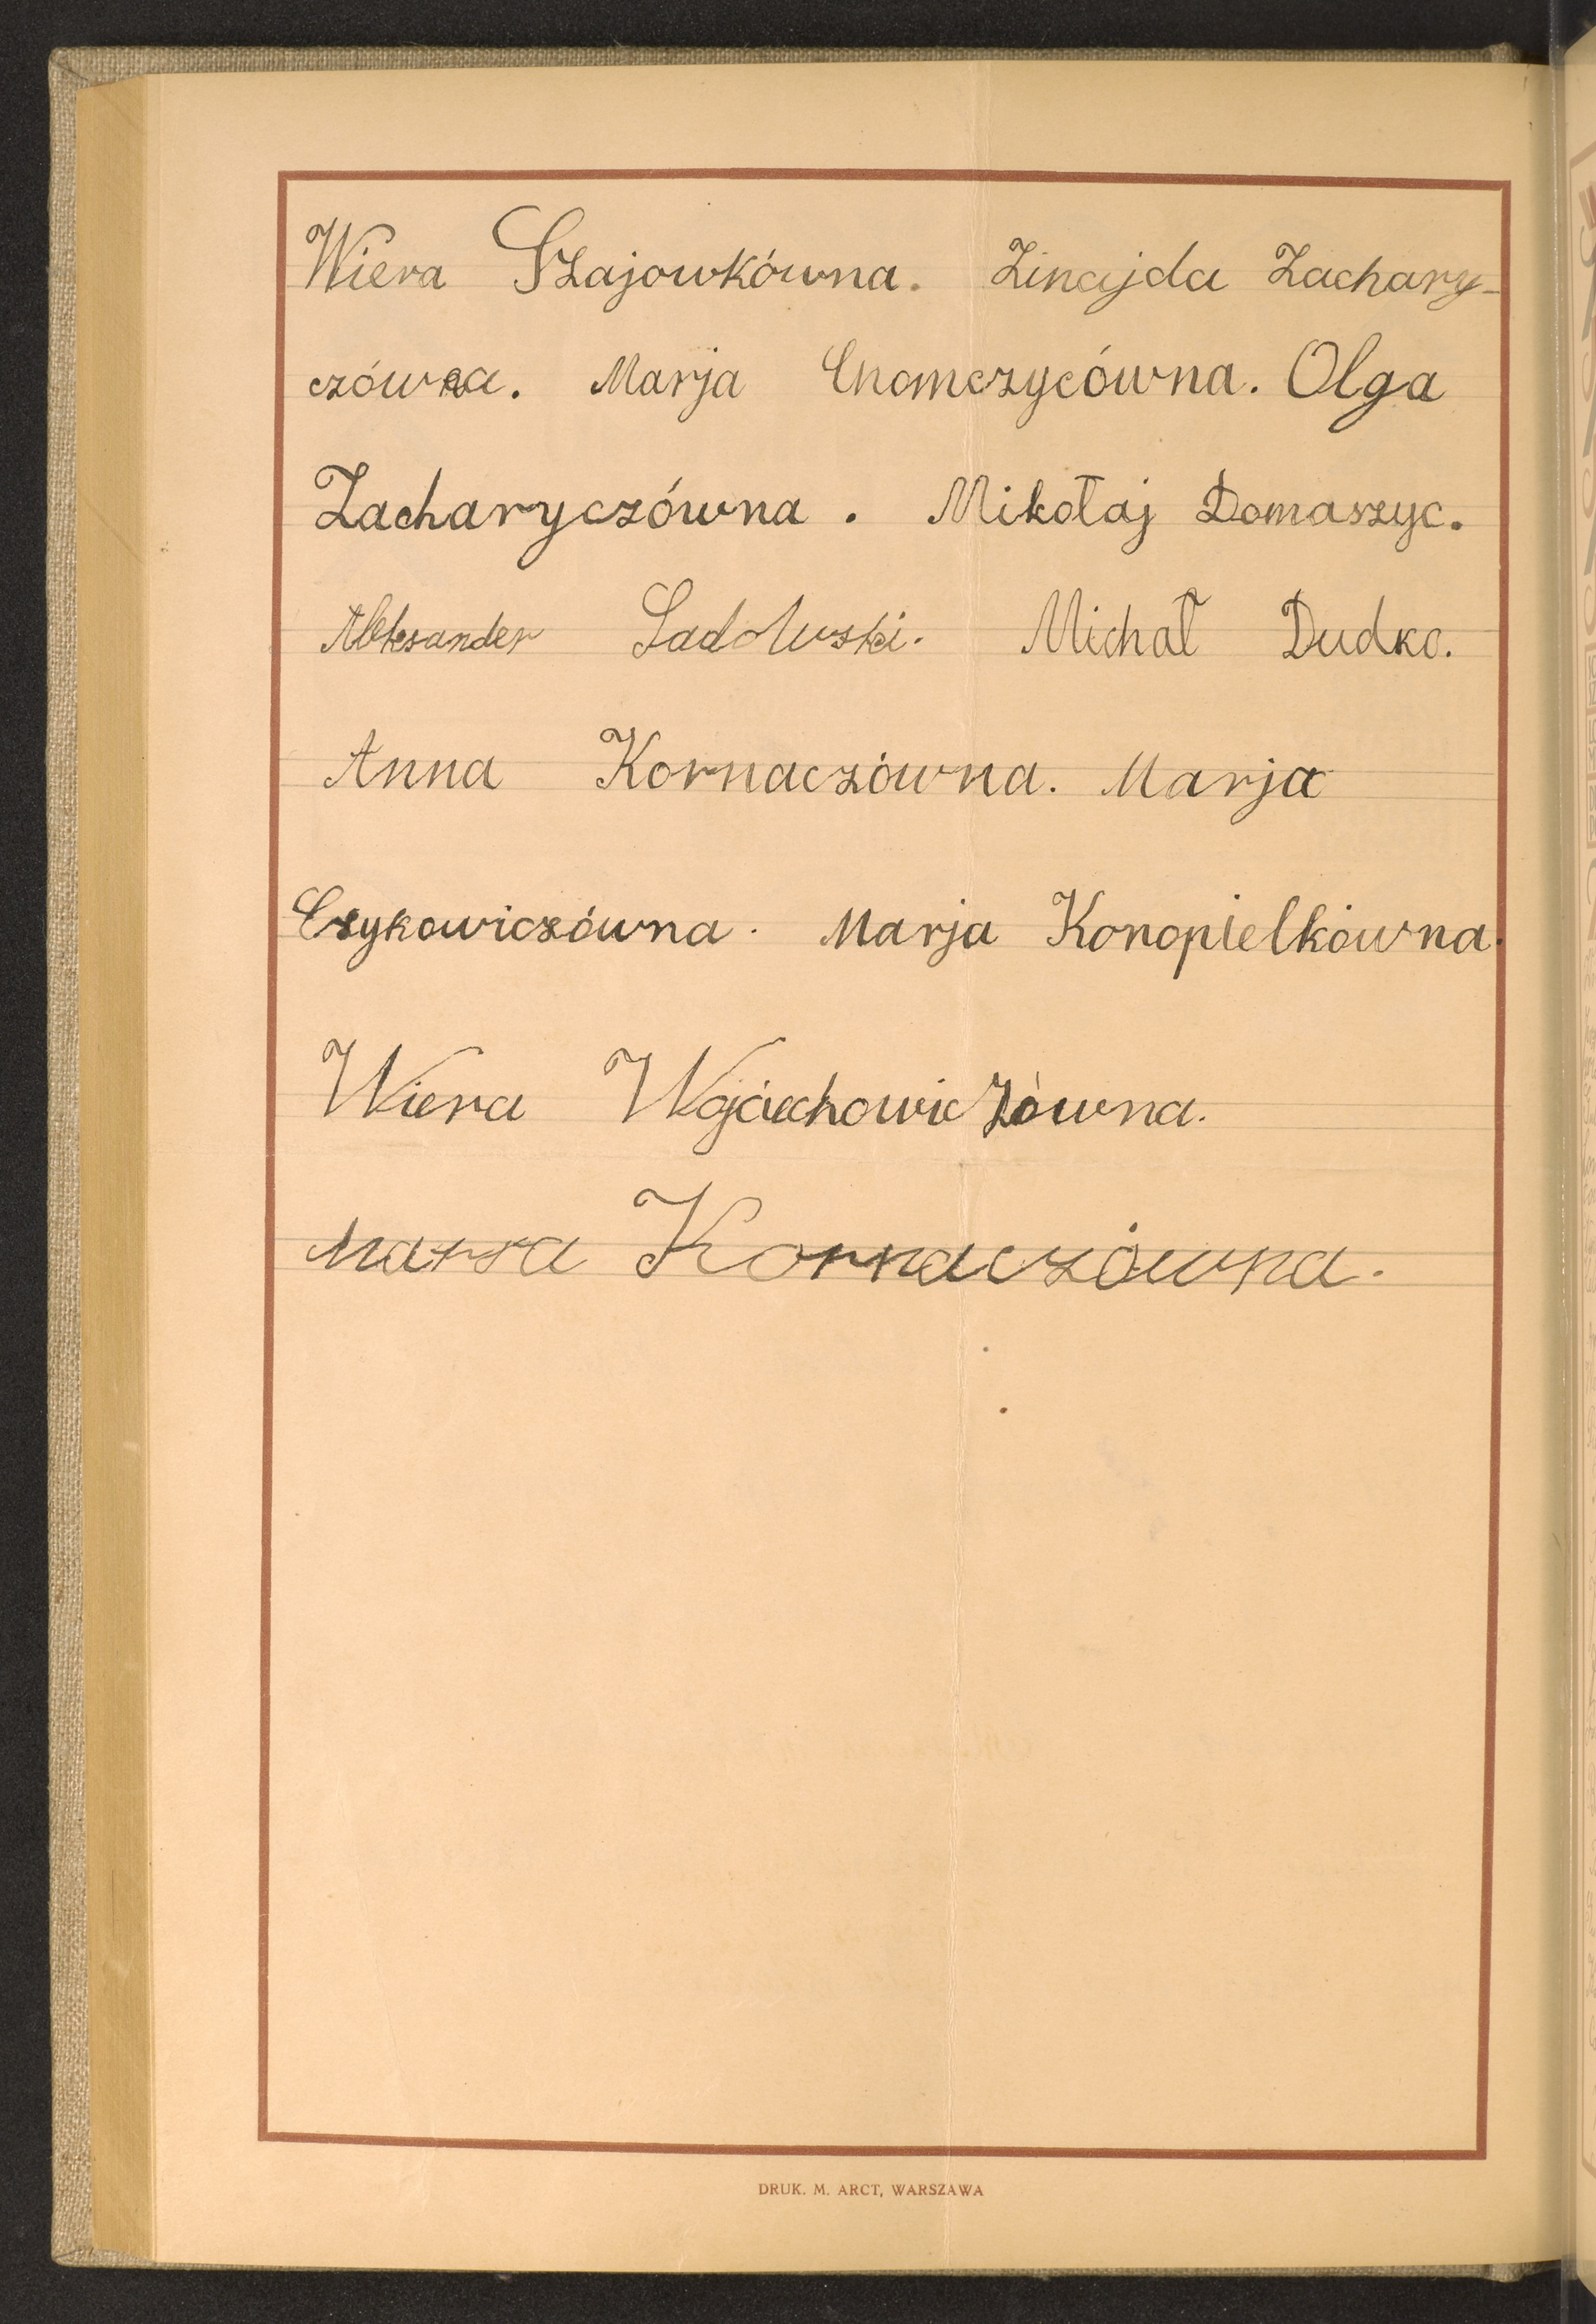 Wiera Szajowkówna. Zinajda Zachary-
czówna. Marja Chomczycówna. Olga
Zacharyczówna. Mikołaj Domaszyc.
Aleksander Sadowski. Michał Dudko.
Anna Kornaczówna. Marja
Czykowiczówna. Marja Konopielkówna.
Wiera Wojciechowiczówna.
Marsa Kornaczówna.
DRUK. M. ARCT, WARSZAWA